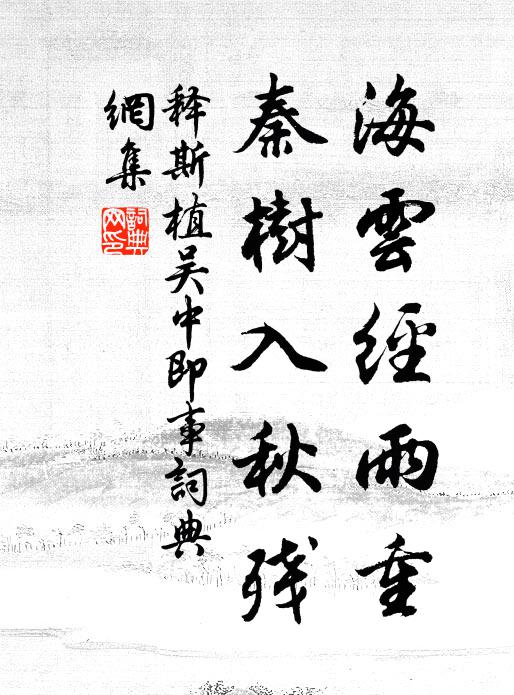 海雲經雨重
秦樹入秋残
释斯植吴中即事詞典
網集
詞典
网印